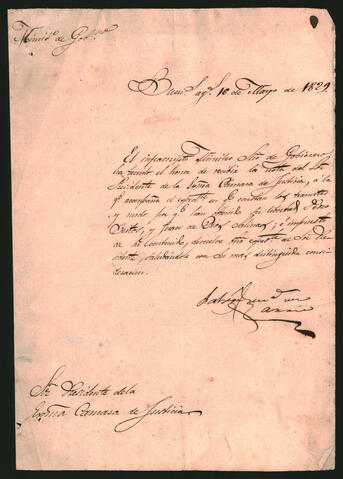 Minist.o de Gob.no
Buen.s Ay.s 18 de Mayo de 1829
El infrascripto Ministro Srio de Gobierno
ha tenido el honor de recibir la nota del Sor
Presidente de la Exma Camara de Justicia, á la
q.e acompaña el en q.e constan los tramites
y modo por q.e han su libertad
y Juan de Dios Salinas; é impuesto
de su contenido, devuelve dho al Sor Pre
sidente, saludandole con su mas distinguida consi
deracion.
Sor Presidente de la
Exma Camara de Justicia